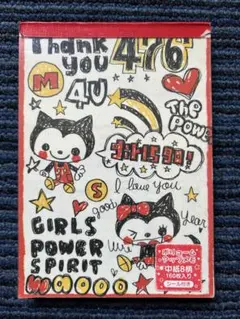 Thank you
4U
476
M
THE POW
GIRLS go!
I love you
S
good
year
GIRLS
POWER
SPIRIT
waooo
中紙8柄
160枚入り
シール付き